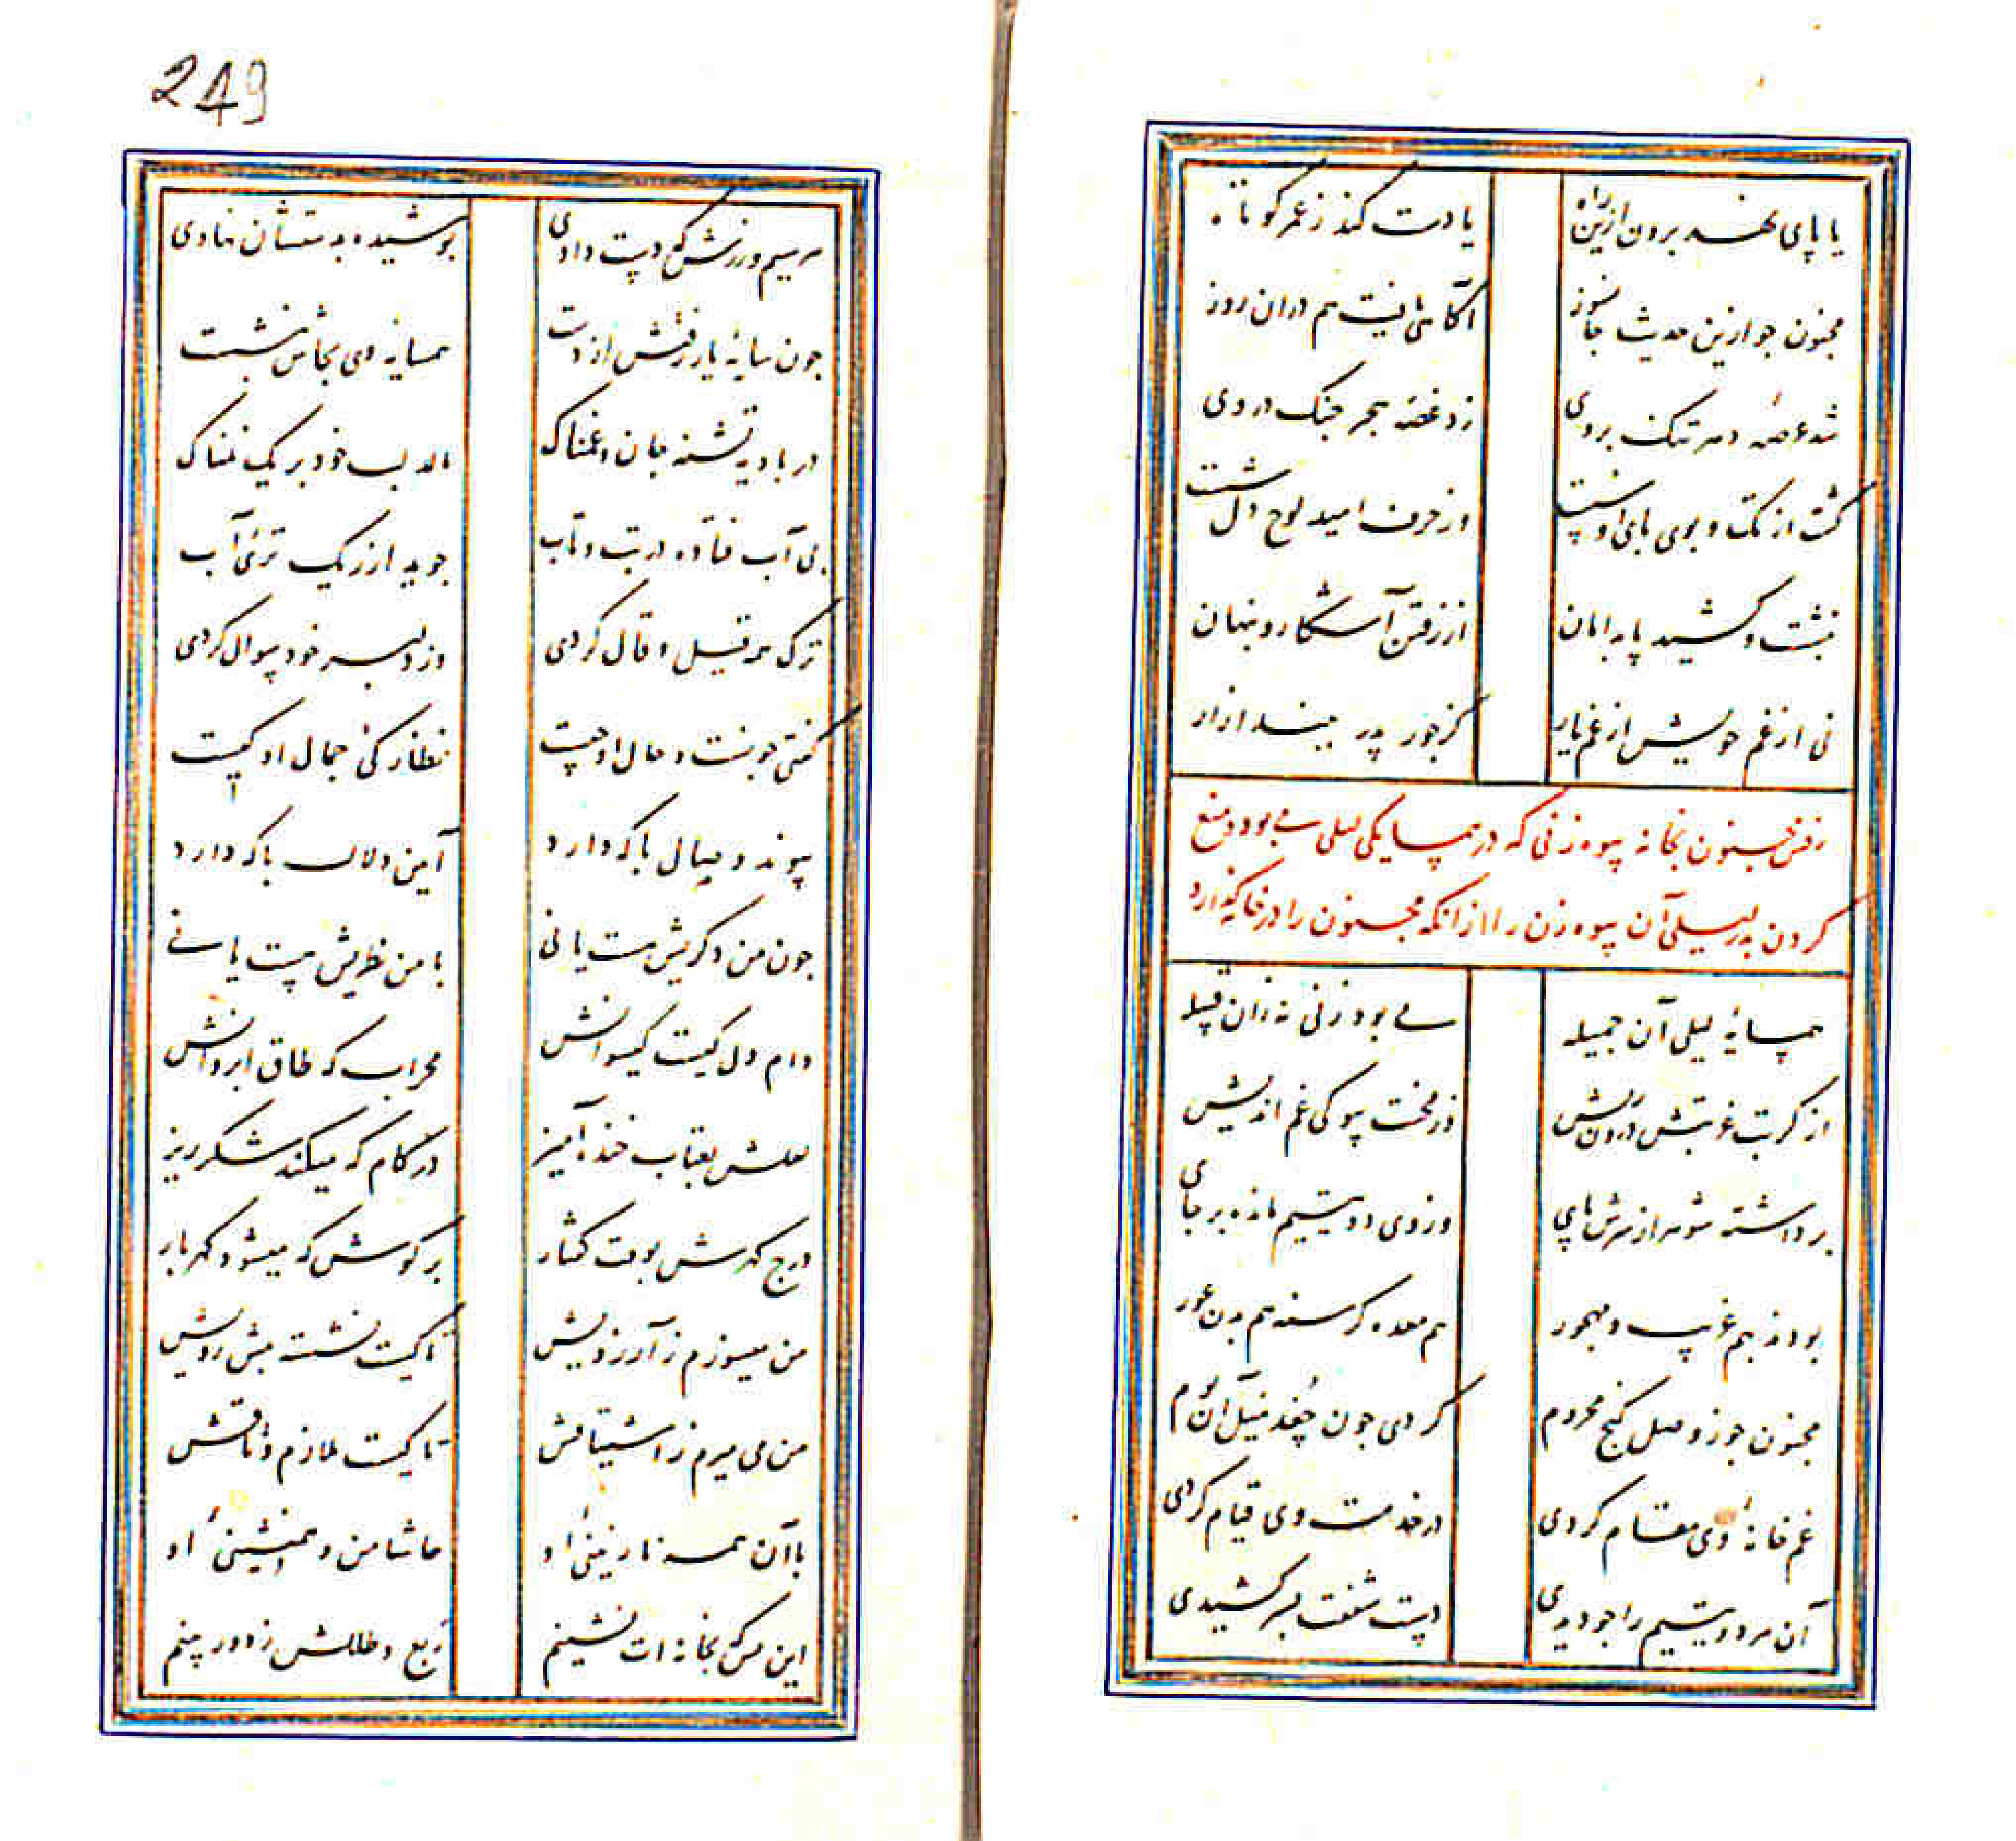 یا پای نهد برون ازین راه
یا دست کند ز عمر کوتاه
مجنون چو ازین حدیث جانسوز
آگاهی یافت هم در آن روز
شد عرصه دهر تنگ بر وی
زد غصه هجر چنگ در وی
گشت از تک و پوی پای او سست
وز حرف امید لوح دل شست
بنشست و کشید پا بدامان
از رفتن آشکار و پنهان
نی از غم خویش از غم یار
کز جور پدر ببیند آزار
رفتن مجنون بخانه بیوه زنی که در همسایگی لیلی می بود و منع
کردن پدر لیلی آن بیوه زن را از آنکه مجنون را در خانه گذارد
همسایهٔ لیلی آن جمیله
می بود زنی نه زان قبیله
از کربت غربتش درون ریش
وز محنت بیوگی غم اندیش
برداشته شوهر از سرش پای
وز وی دو یتیم مانده بر جای
بودند بهم غریب و مهجور
هم معده گرسنه هم بدن عور
مجنون چو ز وصل گنج محروم
کردی چون جغد میل آن بوم
غم خانهٔ وی مقام کردی
در خدمت وی قیام کردی
آن هر دو یتیم را چو دیدی
دست شفقت بسر کشیدی
249
هر سیم و زرش که دست دادی
پوشیده بدستشان نهادی
چون سایهٔ یار رفتش از دست
همسایهٔ وی بجاش بنشست
در بادیه تشنه جان غمناک
مالد لب خود بریگ نمناک
بی آب فتاده در تب و تاب
جوید از ریگ تری آب
ترک همه قیل و قال کردی
وز دلبر خود سوال کردی
گفتی چونست و حال او چیست
نظارگی جمال او کیست
پیوند وصال با که دارد
آیین دلال با که دارد
چون من دگریش هست یا نی
با من نظریش هست یا نی
دام دل کیست گیسوانش
محراب که طاق ابروانش
لعلش بعتاب خنده آمیز
در کام که میکند شکر ریز
درج گهرش بوقت گفتار
بر گوش که میشود گهربار
من میسوزم ز آرزویش
تا کیست نشسته پیش رویش
من می میرم ز اشتیاقش
تا کیست ملازم وثاقش
با آن همه نازنینی او
حاشا من و همنشینی او
این بس که بخانه ات نشینم
ربع و طللش ز دور بینم